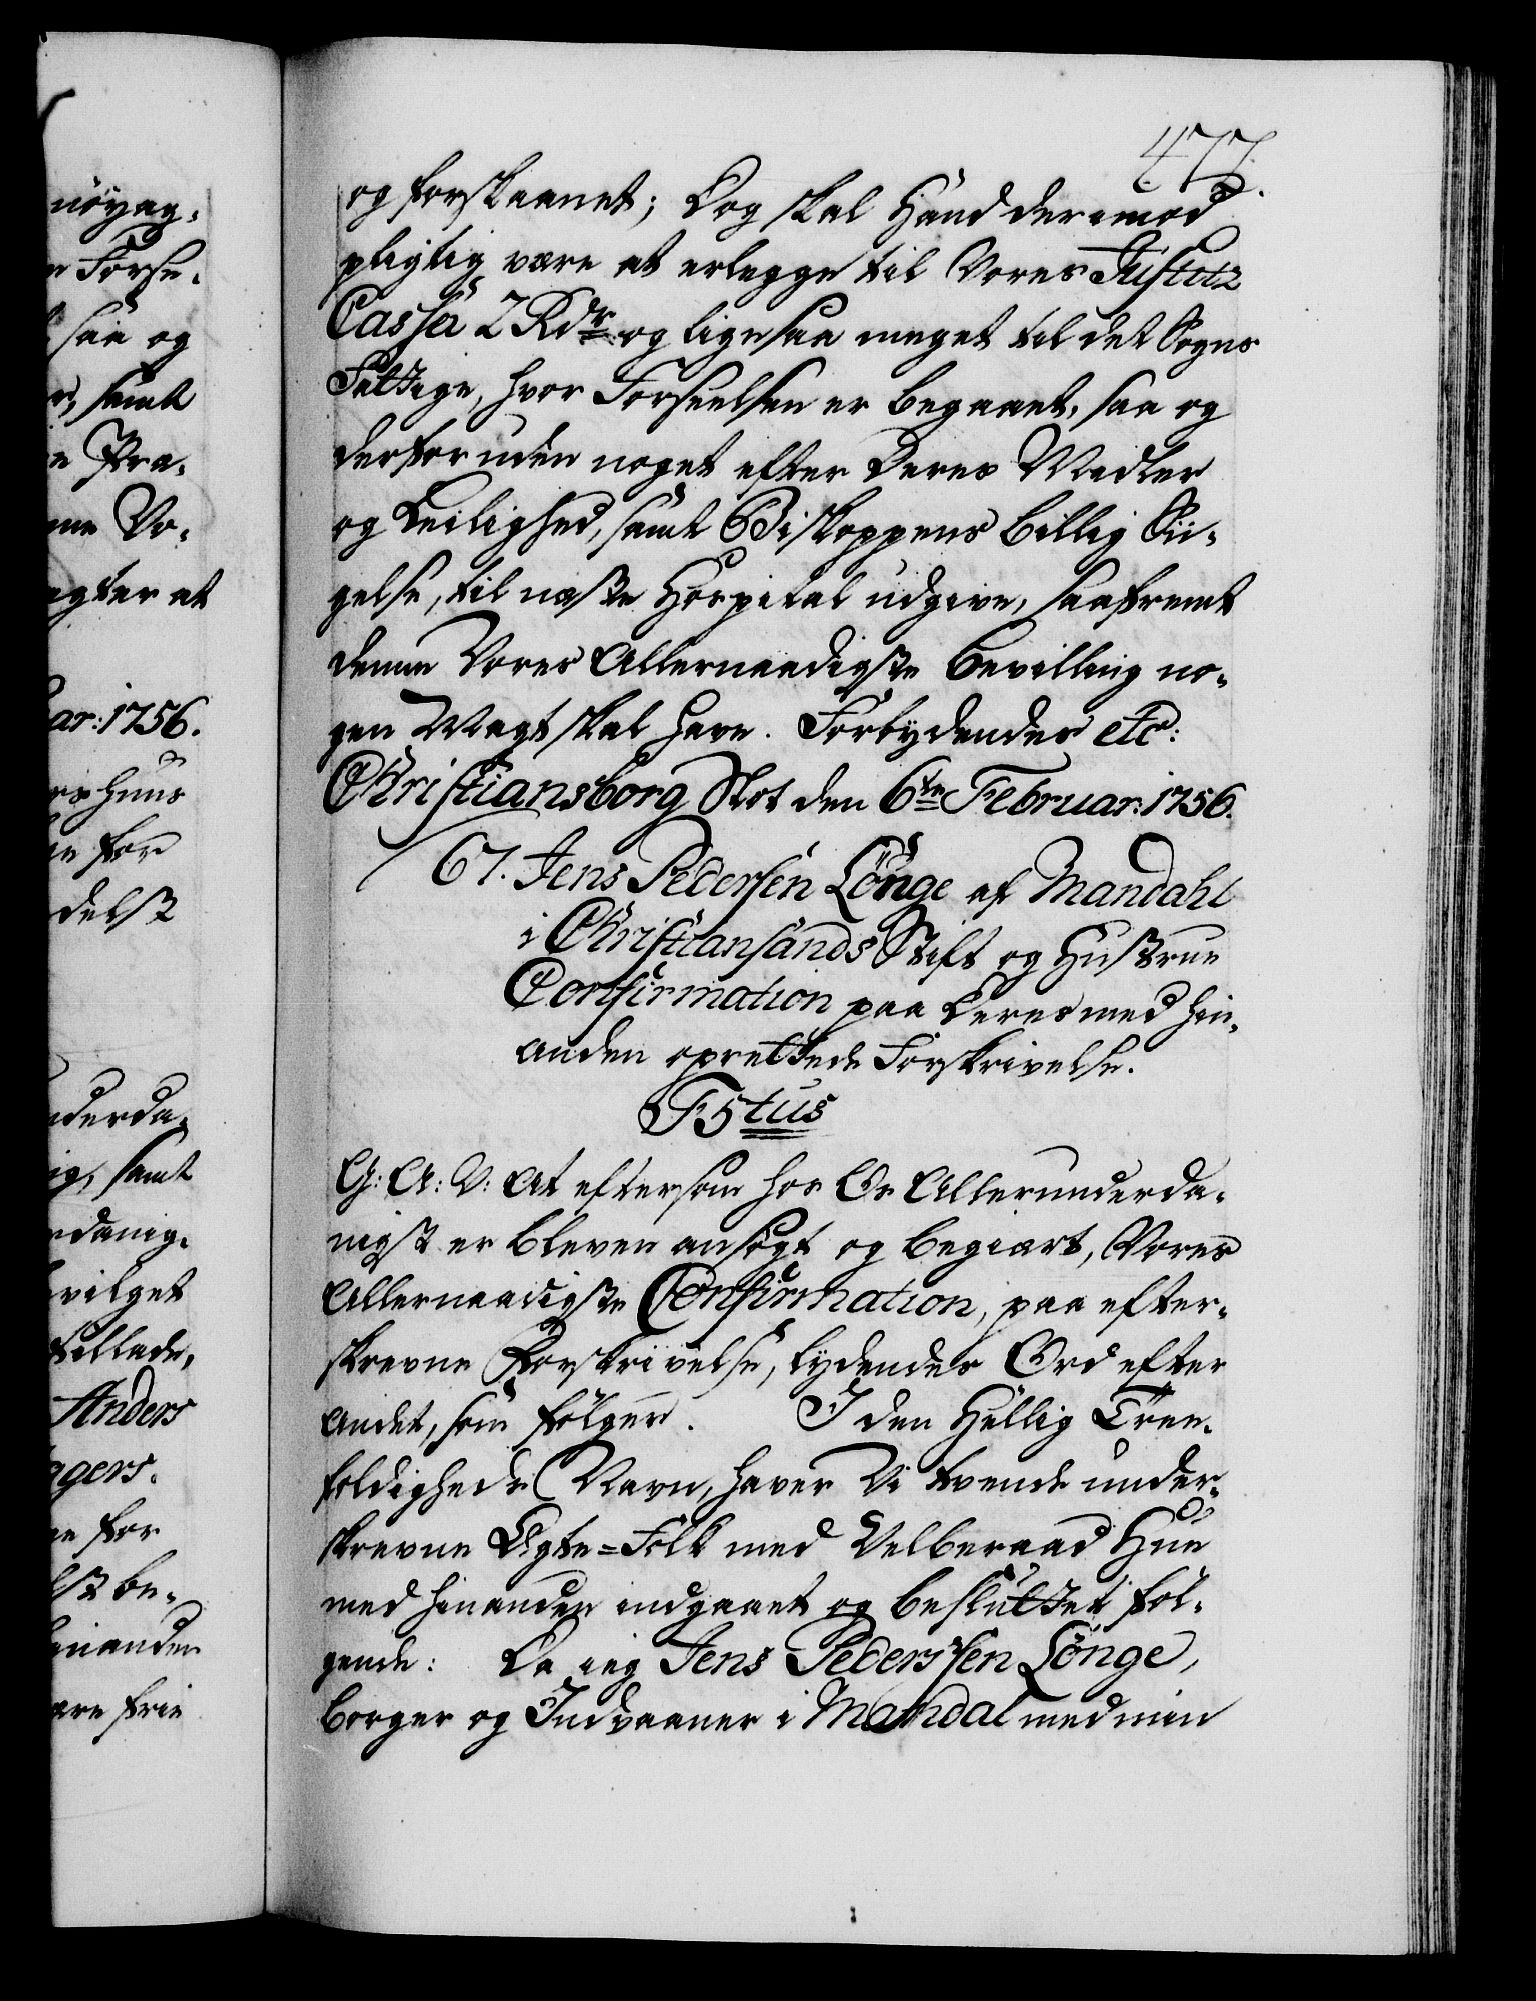 nöyag-
n Forse-
saa og
r, samt
e Pra-
me Vo-
egter at
ar: 1756.
rs Huus
ne for
delst
nderda-
ig, samt
rdanig-
vilget
tillade,
Anders
gers-
ne for
lst be-
hinanden
ære frie
477.
og forskaanet; Dog skal Hand derimod
pligtig være at erlegge til Vores Justitz
Cassa 2 Rdr og ligesaa meget til det Sogns
Fattige, hvor Forseelsen er begaaet, saa og
derforuden noget efter Deres Midler
og Leilighed, samt Biskoppens billig Sii-
gelse, til næste Hospital udgive, saafremt
denne Vores Allernaadigste Bevilling no-
gen Magt skal have. Forbydendes etc:
Christiansborg Slot den 6te Februar: 1756.
67. Jens Pedersen Lönge af Mandahl
i Christiansands Stift og Hustrue
Confirmation paa Deres med hin-
anden oprettede Forskrivelse.
F5tus
G: A: V: At eftersom hos Os Allerunderda-
nigst er bleven ansøgt og begiært, Vores
Allernaadigste Confirmation, paa efter-
skrevne Forskrivelse, lydendes Ord efter
andet, som følger. I den Hellig Tree-
foldigheds Navn, haver Vi tvende under-
skrevne Ægte=Folk med Velberaad Hue
med hinanden indgaaet og besluttet føl-
gende: Da ieg Jens Pederssen Lönge,
Borger og Indvaaner i Mandal med min